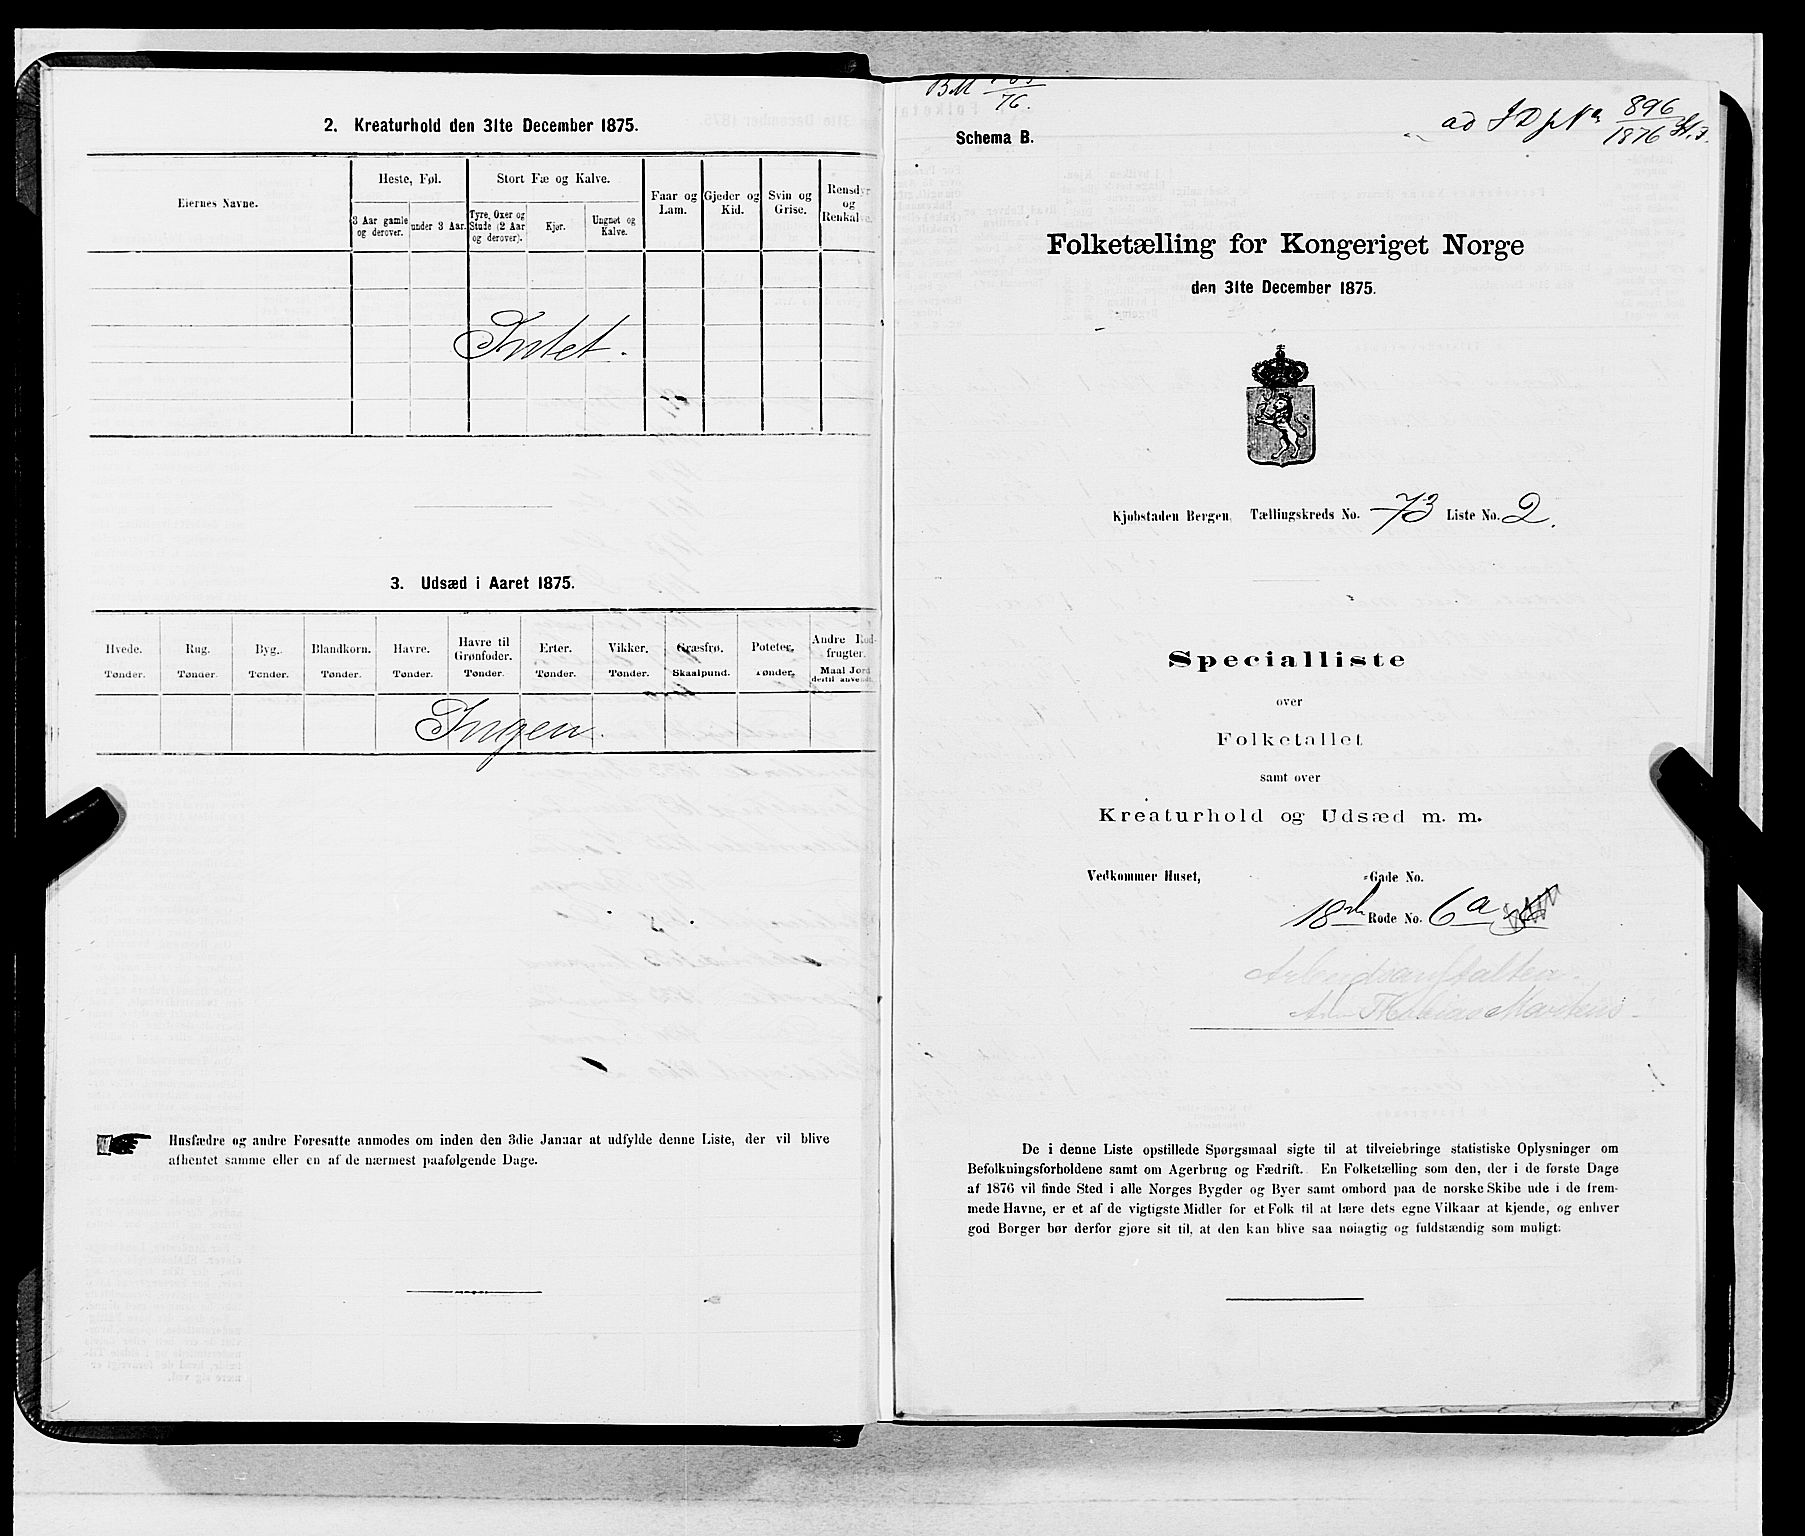 2. Kreaturhold den 31te December 1875.
Eiernes Navne.
Heste, Føl.
Stort Fæ og Kalve.
Faar og Lam.
Gjeder og Kid.
Svin og Grise.
Rensdyr og Renkalve.
3 Aar gamle og derover.
under 3 Aar.
Tyre, Oxer og Stude (2 Aar og derover).
Kjør.
Ungnøt og Kalve.
Intet.
3. Udsæd i Aaret 1875.
Hvede. Rug. Byg. Blandkorn. Havre. Havre til Grønfoder. Erter. Vikker. Græsfrø. Poteter. Andre Rodfrugter.
Tønder. Tønder. Tønder. Tønder. Tønder. Tønder. Tønder. Tønder. Skaalpund. Tønder. Maal Jord dertil anvendt.
Ingen.
Husfædre og andre Foresatte anmodes om inden den 3die Januar at udfylde denne Liste, der vil blive
afhentet samme eller en af de nærmest paafølgende Dage.
76.
ad 896
1876
Schema B.
Folketælling for Kongeriget Norge
den 31te December 1875.
Kjøbstaden Bergen. Tællingskreds No. 73 Liste No. 2.
Specialliste
over
Folketallet
samt over
Kreaturhold og Udsæd m. m.
Vedkommer Huset, Gade No.
18de Rode No. 6a
Arbeidsanstalten.
De i denne Liste opstillede Spørgsmaal sigte til at tilveiebringe statistiske Oplysninger om
Befolkningsforholdene samt om Agerbrug og Fædrift. En Folketælling som den, der i de første Dage
af 1876 vil finde Sted i alle Norges Bygder og Byer samt ombord paa de norske Skibe ude i de frem-
mede Havne, er et af de vigtigste Midler for et Folk til at lære dets egne Vilkaar at kjende, og enhver
god Borger bør derfor gjøre sit til, at den kan blive saa nøiagtig og fuldstændig som muligt.